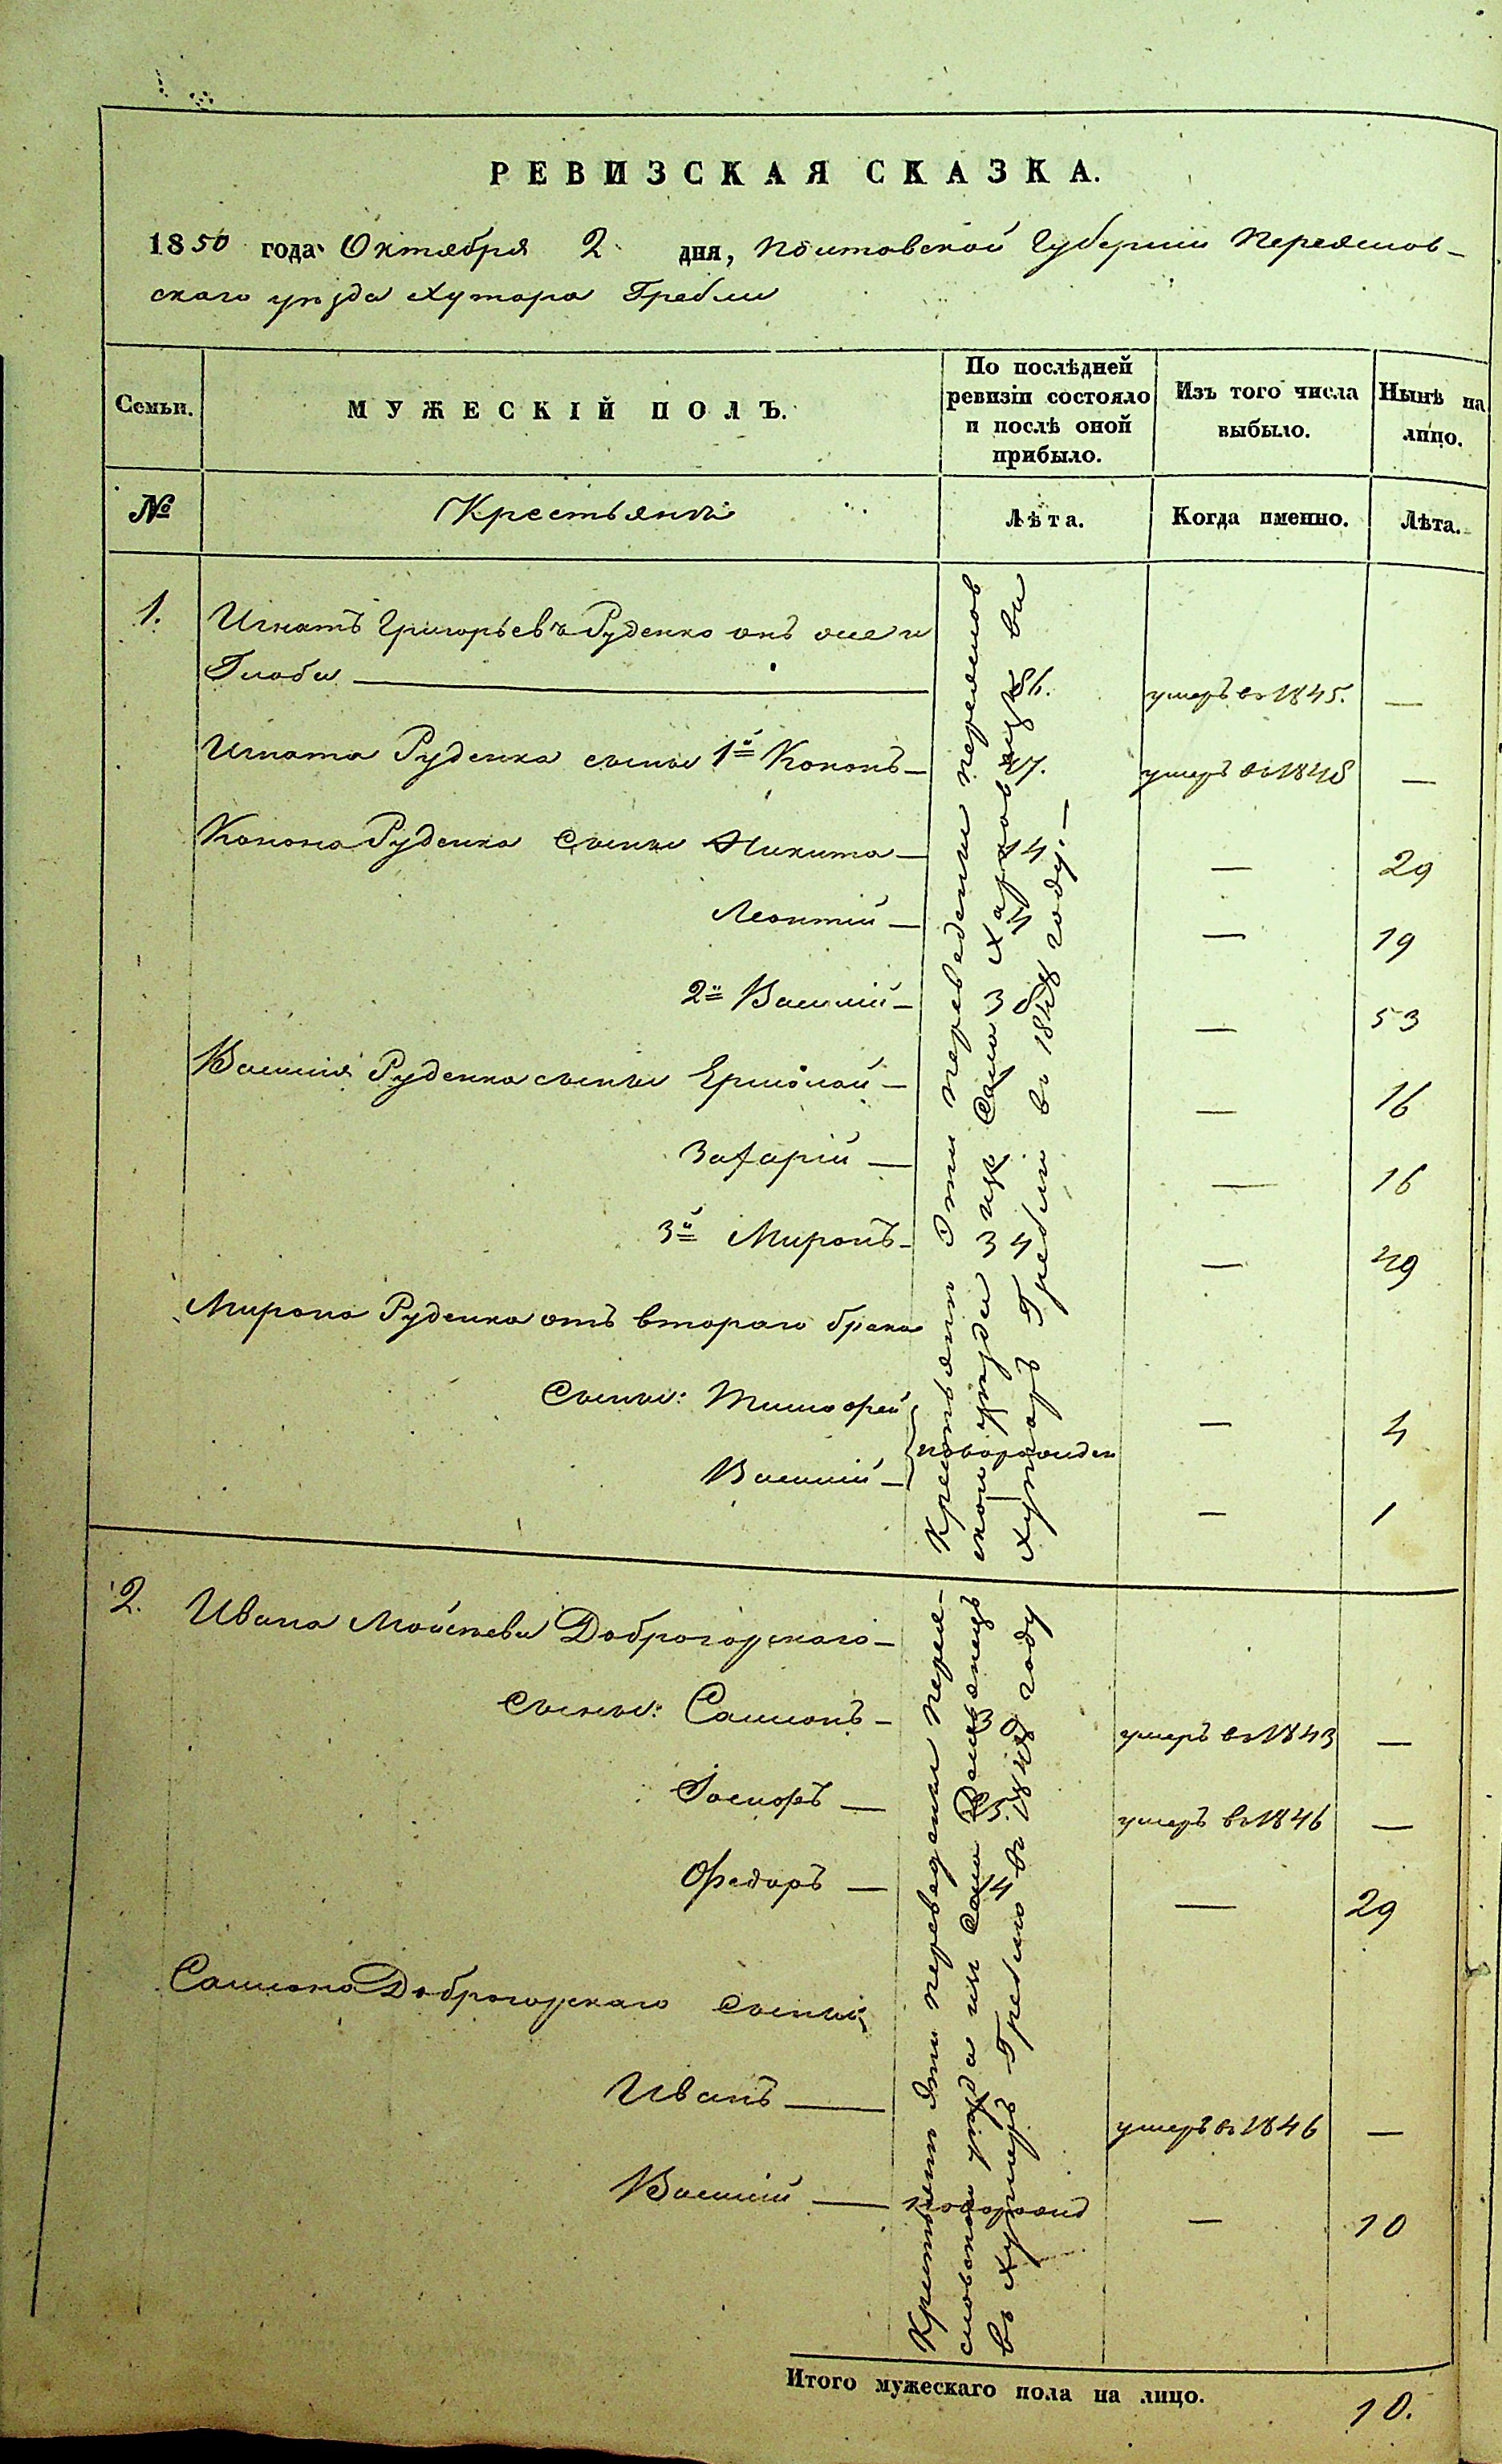 РЕВИЗСКАЯ СКАЗКА.
1850 года Октября 2 дня, Полтавской Губернии Переяслов-
скаго уѣзда Хутора Гребли
Семьи.
МУЖЕСКІЙ ПОЛЪ.
По послѣдней
ревизіи состояло
и послѣ оной
прибыло.
Изъ того числа
выбыло.
Нынѣ на
лицо.
№
Крестьяне
Лѣта.
Когда именно.
Лѣта.
1. Игнатъ Григорьевъ Руденко онъ же и
Глоба — 86. умеръ въ 1845. —
Игната Руденка сыны 1й Кононъ — 47. умеръ въ 1848 —
Конона Руденка сыны Никита — 14 — 29
Леонтій — 4 — 19
2й Василій — — 53
Василія Руденка сыны Ермолай — — 16
Захарій — — 16
3й Миронъ — 34 — 49
Мирона Руденка отъ втораго брака
сыны: Тимофей — 4
новорожден
Василій — — 1
Крестьяне эти переведены переяслов
скаго уѣзда изъ села Харьковець въ
хуторъ Греблю въ 1848 году. —
2. Ивана Мойсеева Доброгорскаго —
сыны: Самсонъ — умеръ въ 1843 —
Іосифъ — 25. умеръ въ 1846 —
Федоръ — 14 — 29
Самсона Доброгорскаго сыны:
Иванъ — умеръ въ 1846 —
Василій — новорожд — 10
Крестьяне эти переведены Перея-
словскаго уѣзда изъ села
въ хуторъ Греблю въ 1848 году
Итого мужескаго пола на лицо. 10.